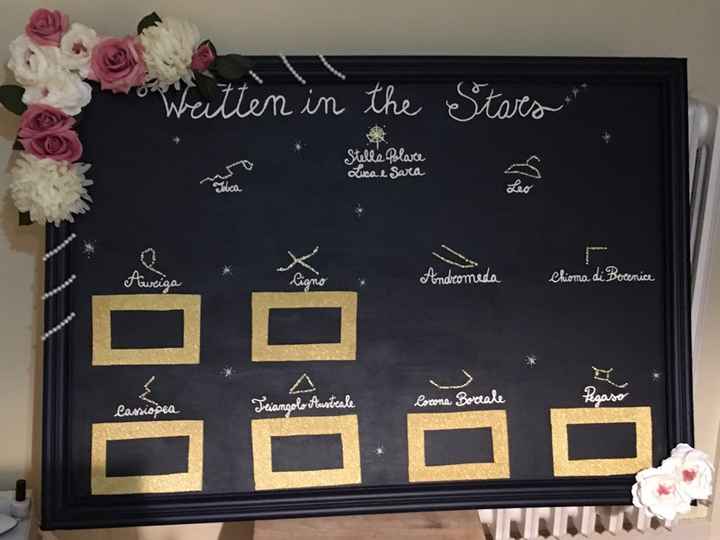 Written in the Stars
Stella Polare
Luca e Sara
Idra
Leo
Auriga
Cigno
Andromeda
Chioma di Berenice
Cassiopea
Triangolo Australe
Corona Boreale
Pegaso